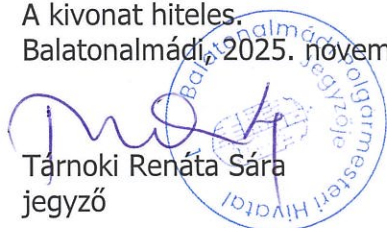 A kivonat hiteles.
Balatonalmádi, 2025. novem
Tárnoki Renáta Sára
jegyző
Balatonalmádi Polgármesteri Hivatal
jegyzője